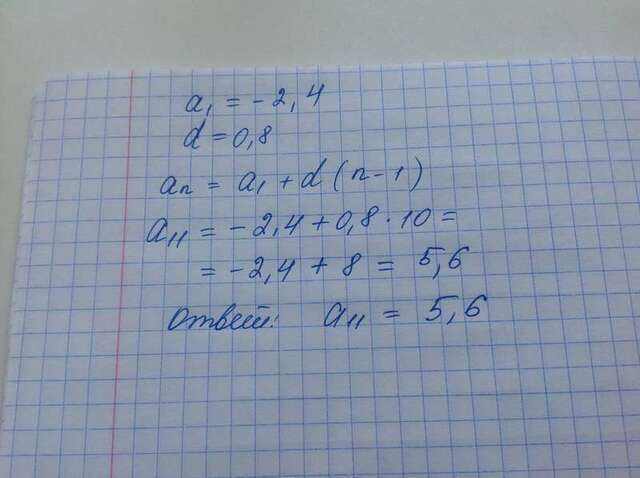 a₁ = -2,4
d = 0,8
aₙ = a₁ + d (n-1)
a₁₁ = -2,4 + 0,8 · 10 =
= -2,4 + 8 = 5,6
Ответ: a₁₁ = 5,6